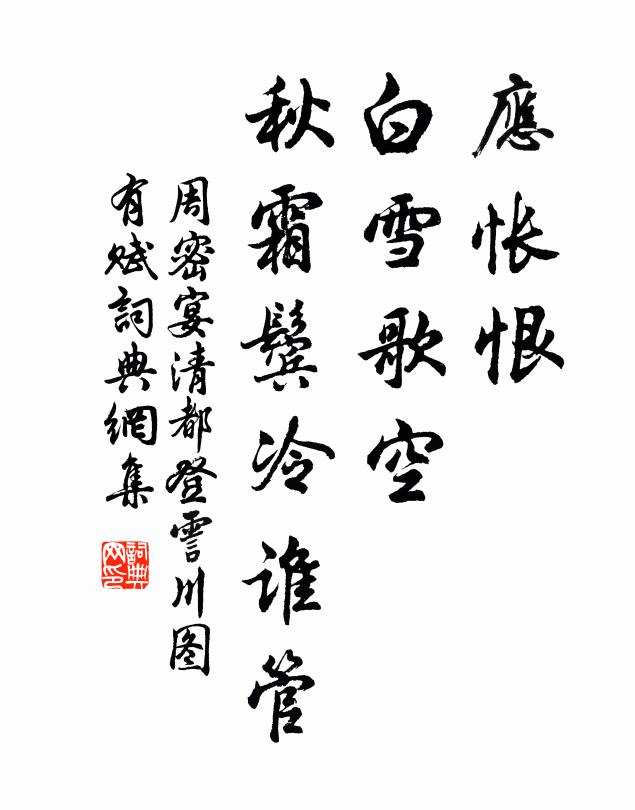 應悵恨
白雪歌空
秋霜鬢冷誰管
周密宴清都登霅川图
有赋詞典網集
詞典网印